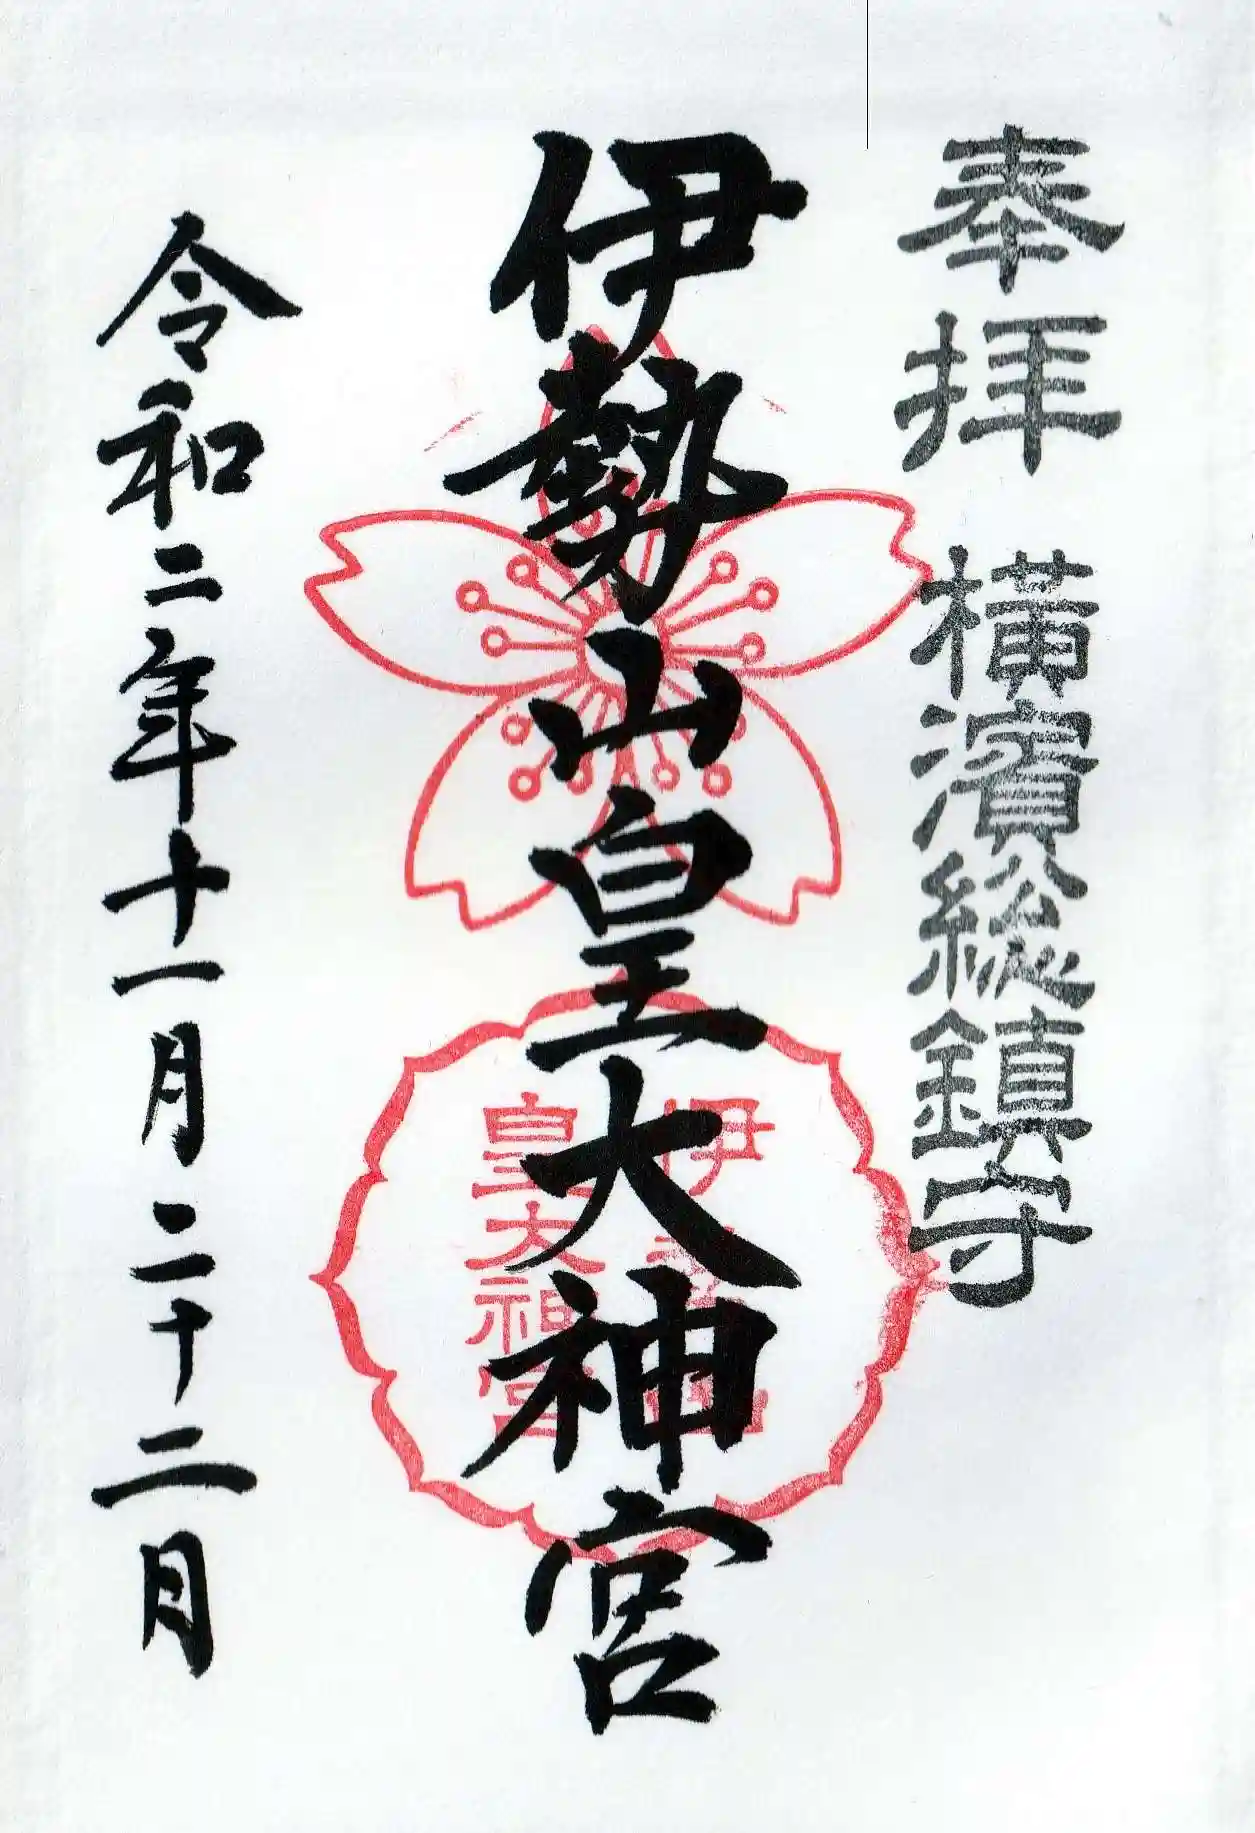 奉拝 横濱総鎮守
伊勢山皇大神宮
伊勢山
皇大神宮
令和二年十一月二十二月